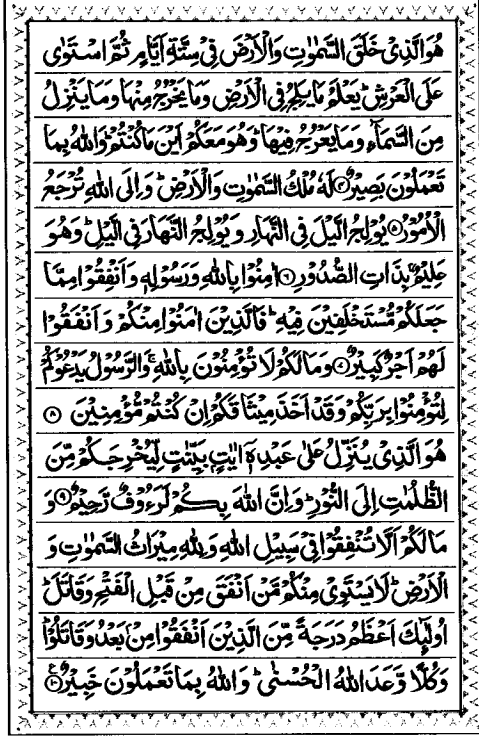 هُوَ الَّذِيْ خَلَقَ السَّمٰوٰتِ وَالْاَرْضَ فِيْ سِتَّةِ اَيَّامٍ ثُمَّ اسْتَوٰى
عَلَى الْعَرْشِ ؕ يَعْلَمُ مَا يَلِجُ فِي الْاَرْضِ وَمَا يَخْرُجُ مِنْهَا وَمَا يَنْزِلُ
مِنَ السَّمَآءِ وَمَا يَعْرُجُ فِيْهَا ؕ وَهُوَ مَعَكُمْ اَيْنَ مَا كُنْتُمْ ؕ وَاللّٰهُ بِمَا
تَعْمَلُوْنَ بَصِيْرٌ ۝۴ لَهٗ مُلْكُ السَّمٰوٰتِ وَالْاَرْضِ ؕ وَاِلَى اللّٰهِ تُرْجَعُ
الْاُمُوْرُ ۝۵ يُوْلِجُ الَّيْلَ فِي النَّهَارِ وَيُوْلِجُ النَّهَارَ فِي الَّيْلِ ؕ وَهُوَ
عَلِيْمٌۢ بِذَاتِ الصُّدُوْرِ ۝۶ اٰمِنُوْا بِاللّٰهِ وَرَسُوْلِهٖ وَاَنْفِقُوْا مِمَّا
جَعَلَكُمْ مُّسْتَخْلَفِيْنَ فِيْهِ ؕ فَالَّذِيْنَ اٰمَنُوْا مِنْكُمْ وَاَنْفَقُوْا
لَهُمْ اَجْرٌ كَبِيْرٌ ۝۷ وَمَا لَكُمْ لَا تُؤْمِنُوْنَ بِاللّٰهِ ۚ وَالرَّسُوْلُ يَدْعُوْكُمْ
لِتُؤْمِنُوْا بِرَبِّكُمْ وَقَدْ اَخَذَ مِيْثَاقَكُمْ اِنْ كُنْتُمْ مُّؤْمِنِيْنَ ۝۸
هُوَ الَّذِيْ يُنَزِّلُ عَلٰى عَبْدِهٖۤ اٰيٰتٍۭ بَيِّنٰتٍ لِّيُخْرِجَكُمْ مِّنَ
الظُّلُمٰتِ اِلَى النُّوْرِ ؕ وَاِنَّ اللّٰهَ بِكُمْ لَرَءُوْفٌ رَّحِيْمٌ ۝۹ وَ
مَا لَكُمْ اَلَّا تُنْفِقُوْا فِيْ سَبِيْلِ اللّٰهِ وَلِلّٰهِ مِيْرَاثُ السَّمٰوٰتِ وَ
الْاَرْضِ ؕ لَا يَسْتَوِيْ مِنْكُمْ مَّنْ اَنْفَقَ مِنْ قَبْلِ الْفَتْحِ وَقَاتَلَ ؕ
اُولٰٓئِكَ اَعْظَمُ دَرَجَةً مِّنَ الَّذِيْنَ اَنْفَقُوْا مِنْۢ بَعْدُ وَقَاتَلُوْا ؕ
وَكُلًّا وَّعَدَ اللّٰهُ الْحُسْنٰى ؕ وَاللّٰهُ بِمَا تَعْمَلُوْنَ خَبِيْرٌ ۝۱۰